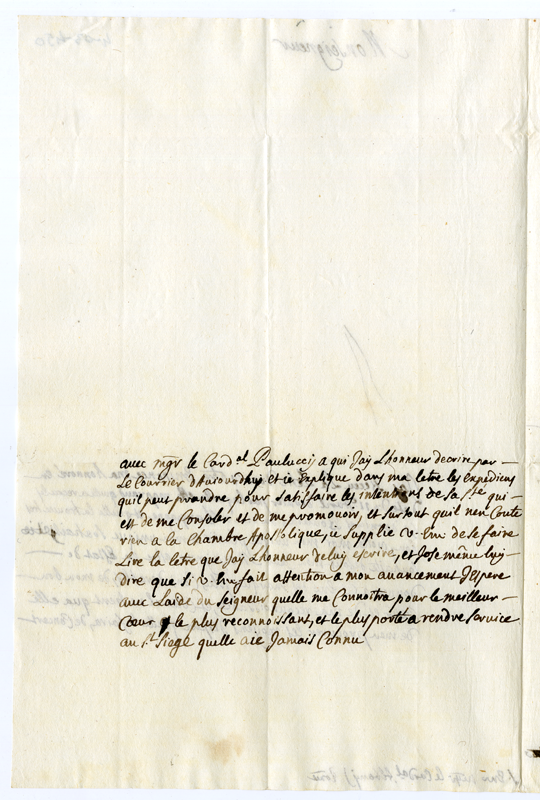 avec mgr le Card.al Paulucci, a qui Jay Lhonneur decrire par
Le Courrier dhuiourdhuy et ie Explique dans ma letre les expediens
quil peut prandre pour satisfaire les intentions de sa S.te qui
est de me Consoler et de me promouoir, et surtout quil nen Coute
rien a la Chambre Apostolique, ie supplie v. Em. de se faire
Lire la letre que Jay Lhonneur de luy escrire, et Jose même luy
dire que si v. Em. fait attention a mon auancement Jespere
auec Laide du seigneur quelle me Connoitra pour le meilleur
Cœur et le plus reconnoissant, et le plus porté a rendre service
au s.t siege quelle aie Jamais Connu